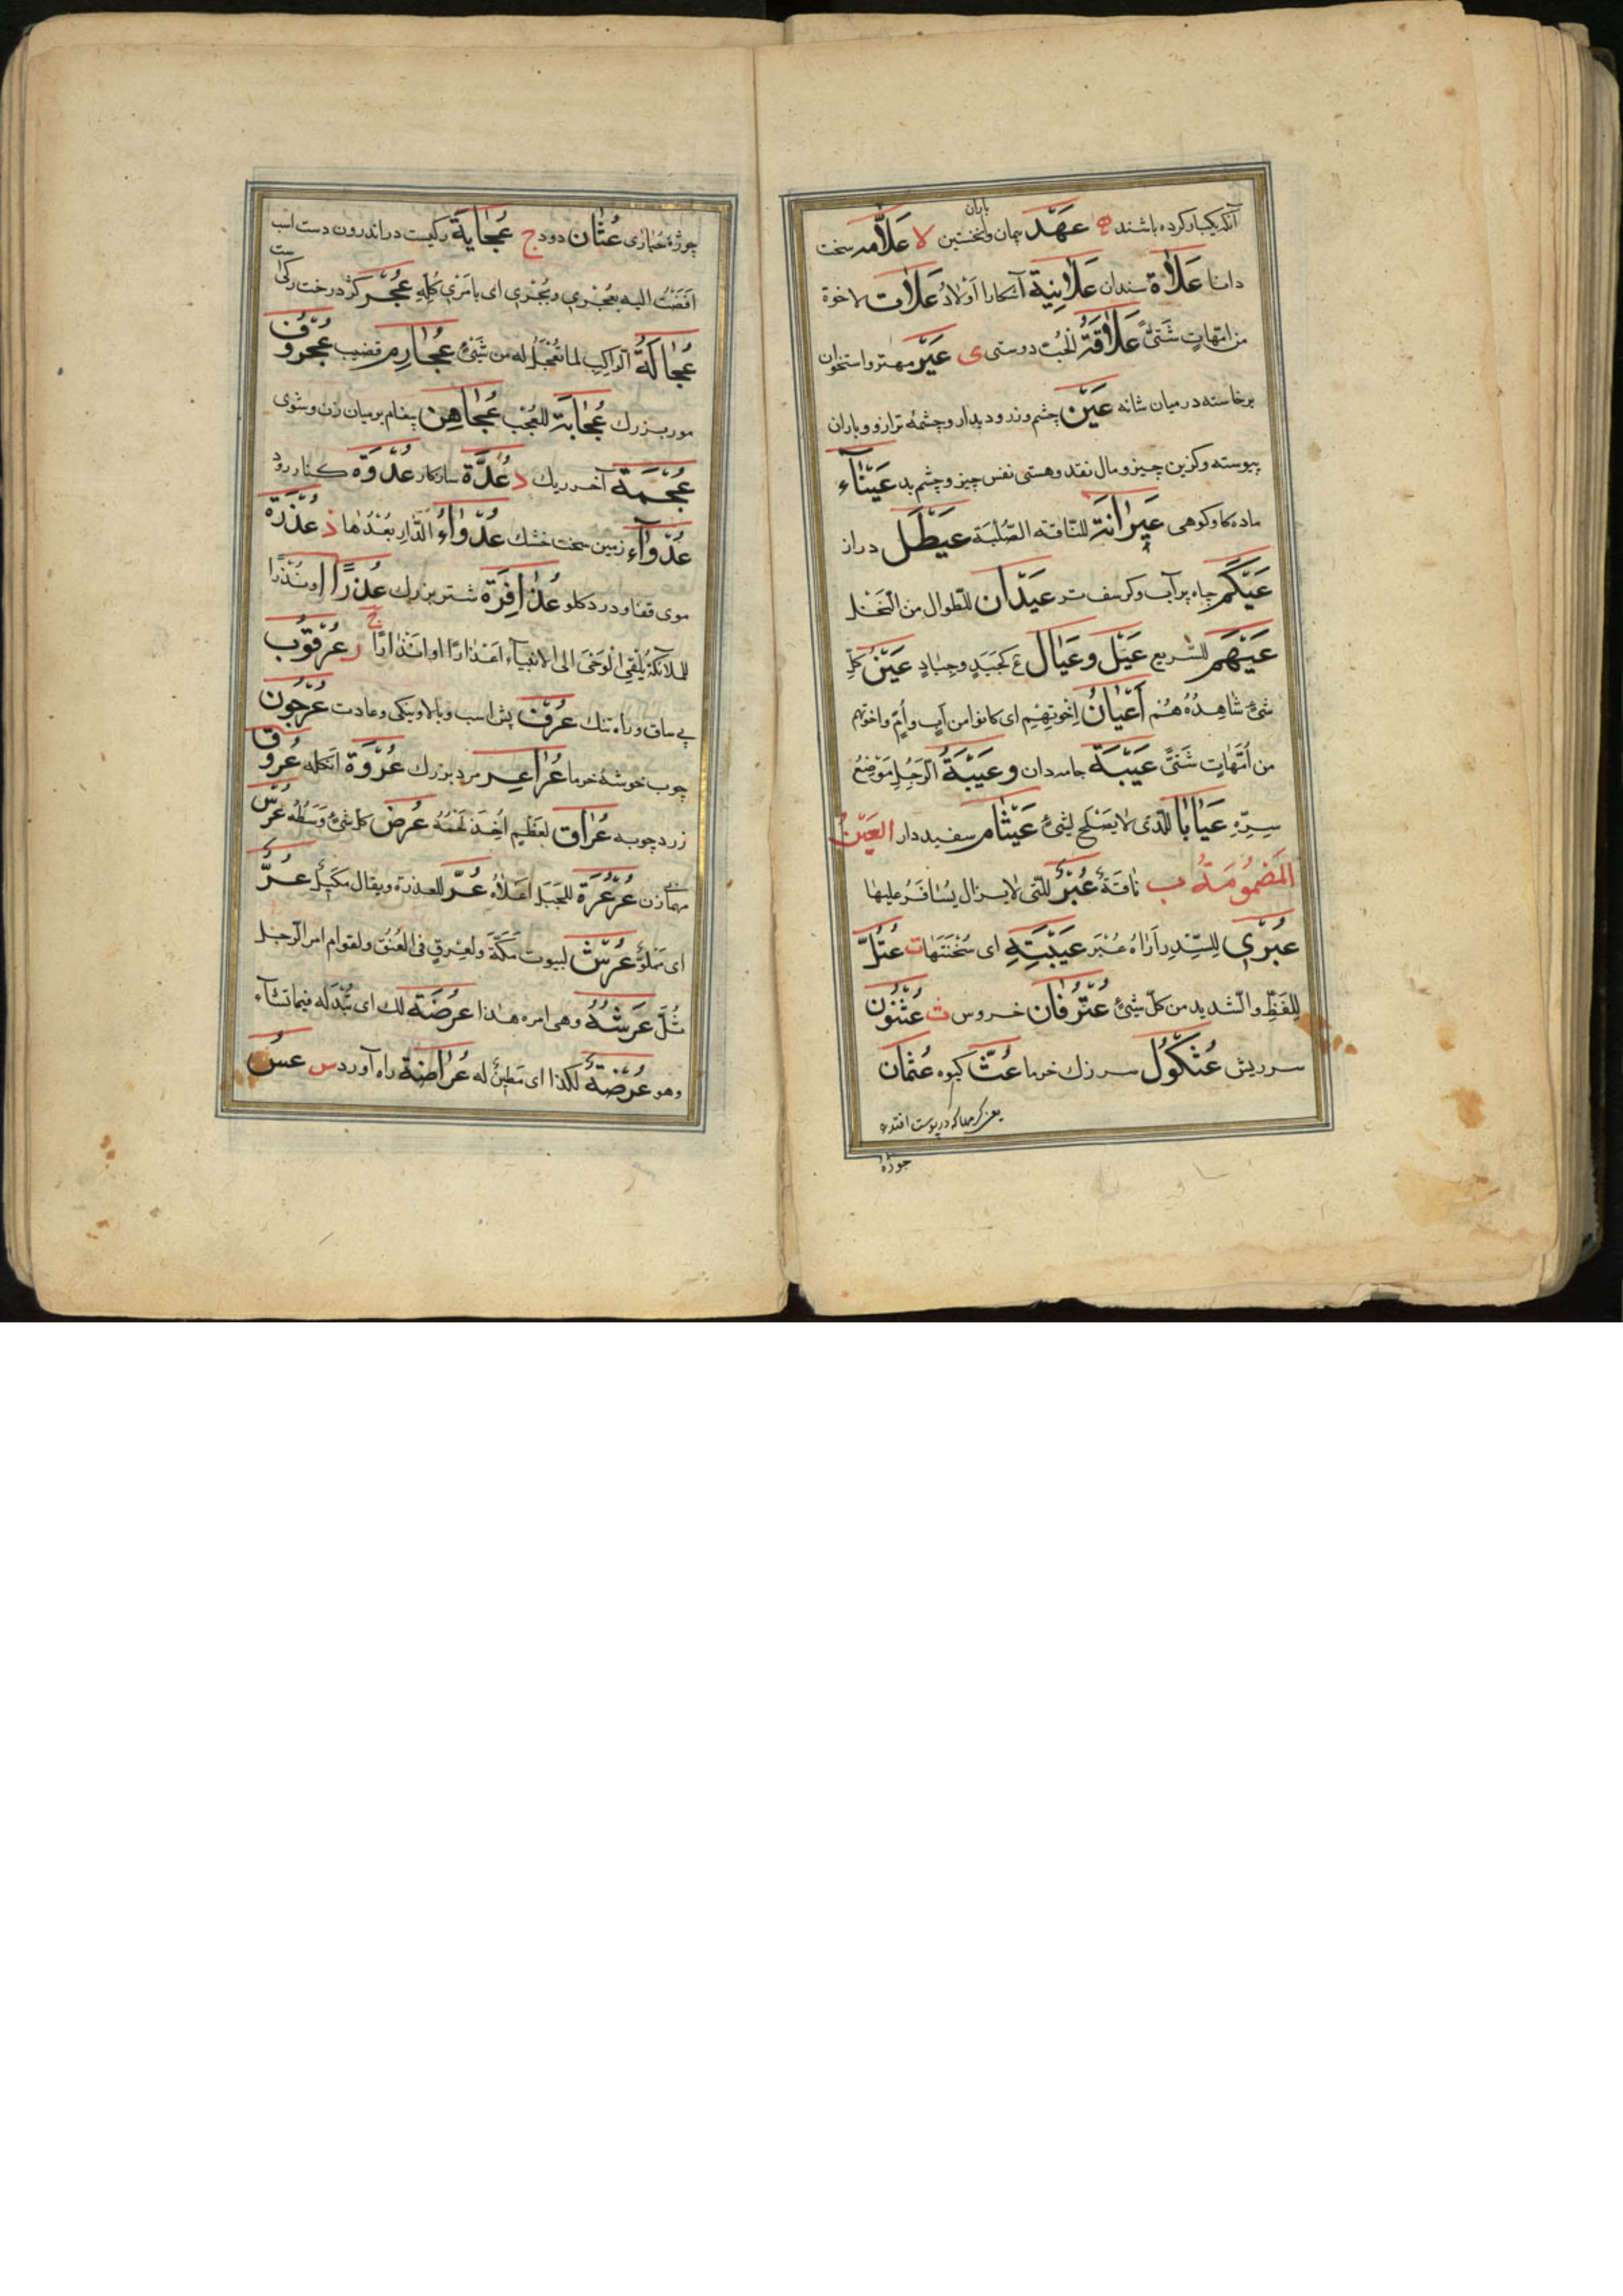 آنکه یکبار کرده باشند ه عَهْد پیمان و نخستین باران لا عَلَّامه سخت
دانا عَلَاة سندان عَلَانِیَة آشکارا اَوْلَادُ عَلَّات لاخوة
من امّهاتٍ شَتّیً عَلَاقَةُ الْحُبّ دوستی ی عَیْر مهتر و استخوان
برخاسته در میان شانه عَیْن چشم و زر و دیدار و چشمهٔ ترازو و باران
پیوسته و گزین چیز و مال نقد و هستی نفس چیز و چشم بد عَیْنَاء
ماده گاو کوهی عَیْرَانَة للنّاقة الصُّلْبَة عَیْطَل دراز
جاه پرآب و کرسف تر عَیْدَان للطّوال من النّخل
عَیْهَم للسّریع عَیِّل و عَیَال ع کجَیِّدٍ و جِیَادٍ عَیْنُ کلِّ
شیءٍ شَاهِدُهُ هُمْ اَعْیَانُ اِخْوَتِهِمْ ای کانوا من اَبٍ و اُمٍّ و اخوتهم
من اُمَّهَاتٍ شَتّیً عَیْبَة جامه دان و عَیْبَةُ الرَّجُلِ مَوْضِعُ
سِرِّهِ عَیَایَا الّذی لا یَصْلُح لِشَیءٍ عَیْثَام سفیددار العَیْنُ
الْمَضْمُومَةُ ب نَاقَةٌ عُبْرٌ للّتی لا یزال یُسَافَرُ علیها
عُبْرِی لِلسِّدْرِ اَرَاهُ عُبْرَ عَیْنَیْهِ ای سُخْنَتَهَا ت عُتُلّ
لِلْفَظِّ و الشّدید من کلّ شیءٍ عُتْرُفَان خروس ث عُثْنُون
سر ریش عُثْکُولُ سر زک خرما عُثّ کیوه عُثْمَان
یعنی کرمهاکه در پوست افتد
جوزهٔ
چوژهٔ حُبَارٰی عُثَان دود ج عُجَایَة رگیست در اندرون دست اسب
اَفْضَیْتُ الیه بِعُجَرِی و بُجَرِی ای بامْرِی کُلِّهِ عُجَر گره درخت رگهاست
عُجَالَةُ الرّاکِبِ لما تُعُجِّلَ له من شَیْءٍ عُجَارِم قضیب عُجْرُوف
مور بزرک عُجَابَة للعُجْب عُجَاهِن پیغام بر میان زن و شوی
عُجْمَة آخر ریک د عُدَّة ساز کار عُدْوَة کنار رود
عُدَوَاء زمین سخت خشک عُدَوَاءُ الدَّارِ بُعْدُهَا ذ عُذْرَة
موی قفا و درد گلو عُذَافِرَة شتر بزرک عُذْرًا او نُذْرًا
للملائکة یُلْقِی الْوَحْیَ الی الانبیآء اعْذَارًا او انْذَارًا ر عُرْقُوب
پی ساق و راه تنک عُرْف پش اسب و بالا و نیکی و عادت عُرْجُون
چوب خوشهٔ خرما عُرَاعِر مرد بزرک عُرْوَة انگله عُرُوق
زردچوبه عُرَاق لِعَظْمٍ اُخِذَ لَحْمُهُ عُرْض کلّ شیءٍ وَسَطُهُ عُرْس
مهمانی زن عُرْعُرَة للجَبَل اعْلَاهُ عُرَّ للعذرة و یقال مَکِیلٌ عُرٌّ
ای مملوٌّ عُرُش لبیوت مَکَّةَ ولِعِرْقٍ فی العُنُق و لقوام امر الرّجل
ثُلَّ عَرْشُهُ وهی امره هذا عُرْضَة لک ای مُبْدَله فیما تشآء
وهو عُرْضَةٌ لکذا ای مَطِیقٌ له عُرَاضَة راه آورد س عُسّ